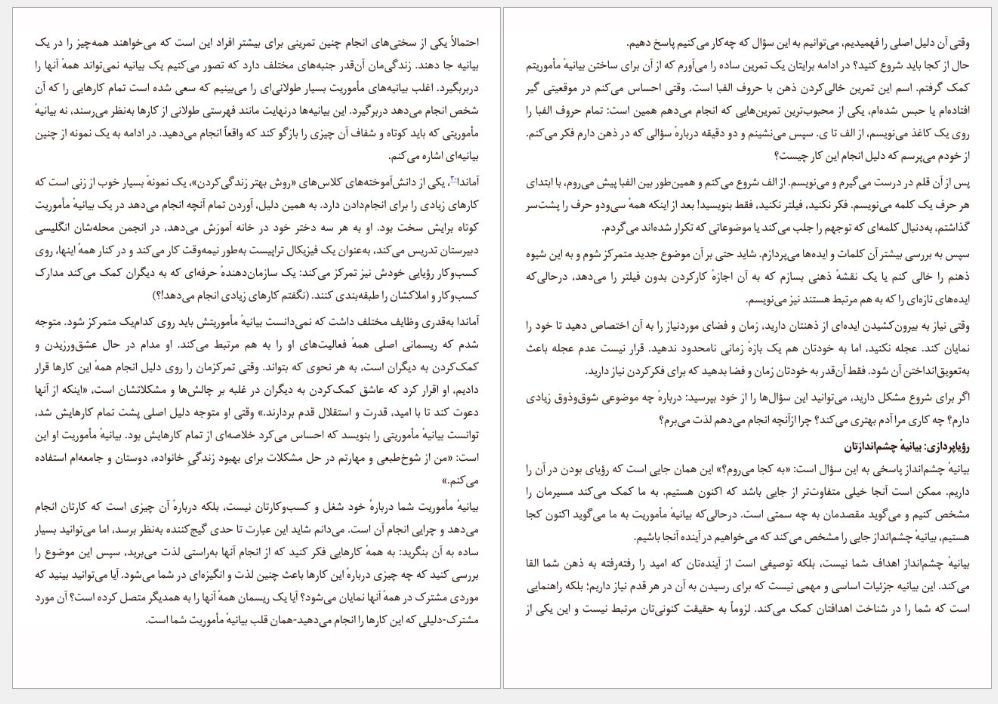 احتمالاً یکی از سختی‌های انجام چنین تمرینی برای بیشتر افراد این است که می‌خواهند همه‌چیز را در یک
بیانیه جا دهند. زندگی‌مان آن‌قدر جنبه‌های مختلف دارد که تصور می‌کنیم یک بیانیه نمی‌تواند همهٔ آنها را
دربربگیرد. اغلب بیانیه‌های مأموریت بسیار طولانی‌ای را می‌بینیم که سعی شده است تمام کارهایی را که آن
شخص انجام می‌دهد دربرگیرد. این بیانیه‌ها درنهایت مانند فهرستی طولانی از کارها به‌نظر می‌رسند، نه بیانیهٔ
مأموریتی که باید کوتاه و شفاف آن چیزی را بازگو کند که واقعاً انجام می‌دهید. در ادامه به یک نمونه از چنین
بیانیه‌ای اشاره می‌کنم.
آماندا، یکی از دانش‌آموخته‌های کلاس‌های «روش بهتر زندگی‌کردن»، یک نمونهٔ بسیار خوب از زنی است که
کارهای زیادی را برای انجام‌دادن دارد. به همین دلیل، آوردن تمام آنچه انجام می‌دهد در یک بیانیهٔ مأموریت
کوتاه برایش سخت بود. او به هر سه دختر خود در خانه آموزش می‌دهد، در انجمن محله‌شان انگلیسی
دبیرستان تدریس می‌کند، به‌عنوان یک فیزیکال تراپیست به‌طور نیمه‌وقت کار می‌کند و در کنار همهٔ اینها، روی
کسب‌وکار رؤیایی خودش نیز تمرکز می‌کند: یک سازمان‌دهندهٔ حرفه‌ای که به دیگران کمک می‌کند مدارک
کسب‌وکار و املاکشان را طبقه‌بندی کنند. (نگفتم کارهای زیادی انجام می‌دهد!؟)
آماندا به‌قدری وظایف مختلف داشت که نمی‌دانست بیانیهٔ مأموریتش باید روی کدام‌یک متمرکز شود. متوجه
شدم که ریسمانی اصلی همهٔ فعالیت‌های او را به هم مرتبط می‌کند. او مدام در حال عشق‌ورزیدن و
کمک‌کردن به دیگران است، به هر نحوی که بتواند. وقتی تمرکزمان را روی دلیل انجام همهٔ این کارها قرار
دادیم، او اقرار کرد که عاشق کمک‌کردن به دیگران در غلبه بر چالش‌ها و مشکلاتشان است، «اینکه از آنها
دعوت کند تا با امید، قدرت و استقلال قدم بردارند.» وقتی او متوجه دلیل اصلی پشت تمام کارهایش شد،
توانست بیانیهٔ مأموریتی را بنویسد که احساس می‌کرد خلاصه‌ای از تمام کارهایش بود. بیانیهٔ مأموریت او این
است: «من از شوخ‌طبعی و مهارتم در حل مشکلات برای بهبود زندگیِ خانواده، دوستان و جامعه‌ام استفاده
می‌کنم.»
بیانیهٔ مأموریت شما دربارهٔ خود شغل و کسب‌وکارتان نیست، بلکه دربارهٔ آن چیزی است که کارتان انجام
می‌دهد و چرایی انجام آن است. می‌دانم شاید این عبارت تا حدی گیج‌کننده به‌نظر برسد، اما می‌توانید بسیار
ساده به آن بنگرید: به همهٔ کارهایی فکر کنید که از انجام آنها به‌راستی لذت می‌برید، سپس این موضوع را
بررسی کنید که چه چیزی دربارهٔ این کارها باعث چنین لذت و انگیزه‌ای در شما می‌شود. آیا می‌توانید ببینید که
موردی مشترک در همهٔ آنها نمایان می‌شود؟ آیا یک ریسمان همهٔ آنها را به همدیگر متصل کرده است؟ آن مورد
مشترک-دلیلی که این کارها را انجام می‌دهید-همان قلب بیانیهٔ مأموریت شما است.
وقتی آن دلیل اصلی را فهمیدیم، می‌توانیم به این سؤال که چه‌کار می‌کنیم پاسخ دهیم.
حال از کجا باید شروع کنید؟ در ادامه برایتان یک تمرین ساده را می‌آورم که از آن برای ساختن بیانیهٔ مأموریتم
کمک گرفتم. اسم این تمرین خالی‌کردن ذهن با حروف الفبا است. وقتی احساس می‌کنم در موقعیتی گیر
افتاده‌ام یا حبس شده‌ام، یکی از محبوب‌ترین تمرین‌هایی که انجام می‌دهم همین است: تمام حروف الفبا را
روی یک کاغذ می‌نویسم، از الف تا ی. سپس می‌نشینم و دو دقیقه دربارهٔ سؤالی که در ذهن دارم فکر می‌کنم.
از خودم می‌پرسم که دلیل انجام این کار چیست؟
پس از آن قلم در درست می‌گیرم و می‌نویسم. از الف شروع می‌کنم و همین‌طور بین الفبا پیش می‌روم، با ابتدای
هر حرف یک کلمه می‌نویسم. فکر نکنید، فیلتر نکنید، فقط بنویسید! بعد از اینکه همهٔ سی‌ودو حرف را پشت‌سر
گذاشتم، به‌دنبال کلمه‌ای که توجهم را جلب می‌کند یا موضوعاتی که تکرار شده‌اند می‌گردم.
سپس به بررسی بیشتر آن کلمات و ایده‌ها می‌پردازم. شاید حتی بر آن موضوع جدید متمرکز شوم و به این شیوه
ذهنم را خالی کنم یا یک نقشهٔ ذهنی بسازم که به آن اجازهٔ کارکردن بدون فیلتر را می‌دهد، درحالی‌که
ایده‌های تازه‌ای را که به هم مرتبط هستند نیز می‌نویسم.
وقتی نیاز به بیرون‌کشیدن ایده‌ای از ذهنتان دارید، زمان و فضای موردنیاز را به آن اختصاص دهید تا خود را
نمایان کند. عجله نکنید، اما به خودتان هم یک بازهٔ زمانی نامحدود ندهید. قرار نیست عدم عجله باعث
به‌تعویق‌انداختن آن شود. فقط آن‌قدر به خودتان زمان و فضا بدهید که برای فکرکردن نیاز دارید.
اگر برای شروع مشکل دارید، می‌توانید این سؤال‌ها را از خود بپرسید: دربارهٔ چه موضوعی شوق‌وذوق زیادی
دارم؟ چه کاری مرا آدم بهتری می‌کند؟ چرا ازآنچه انجام می‌دهم لذت می‌برم؟
رؤیاپردازی: بیانیهٔ چشم‌اندازتان
بیانیهٔ چشم‌انداز پاسخی به این سؤال است: «به کجا می‌روم؟» این همان جایی است که رؤیای بودن در آن را
داریم. ممکن است آنجا خیلی متفاوت‌تر از جایی باشد که اکنون هستیم. به ما کمک می‌کند مسیرمان را
مشخص کنیم و می‌گوید مقصدمان به چه سمتی است. درحالی‌که بیانیهٔ مأموریت به ما می‌گوید اکنون کجا
هستیم، بیانیهٔ چشم‌انداز جایی را مشخص می‌کند که می‌خواهیم در آینده آنجا باشیم.
بیانیهٔ چشم‌انداز اهداف شما نیست، بلکه توصیفی است از آینده‌تان که امید را رفته‌رفته به ذهن شما القا
می‌کند. این بیانیه جزئیات اساسی و مهمی نیست که برای رسیدن به آن در هر قدم نیاز داریم؛ بلکه راهنمایی
است که شما را در شناخت اهدافتان کمک می‌کند. لزوماً به حقیقت کنونی‌تان مرتبط نیست و این یکی از